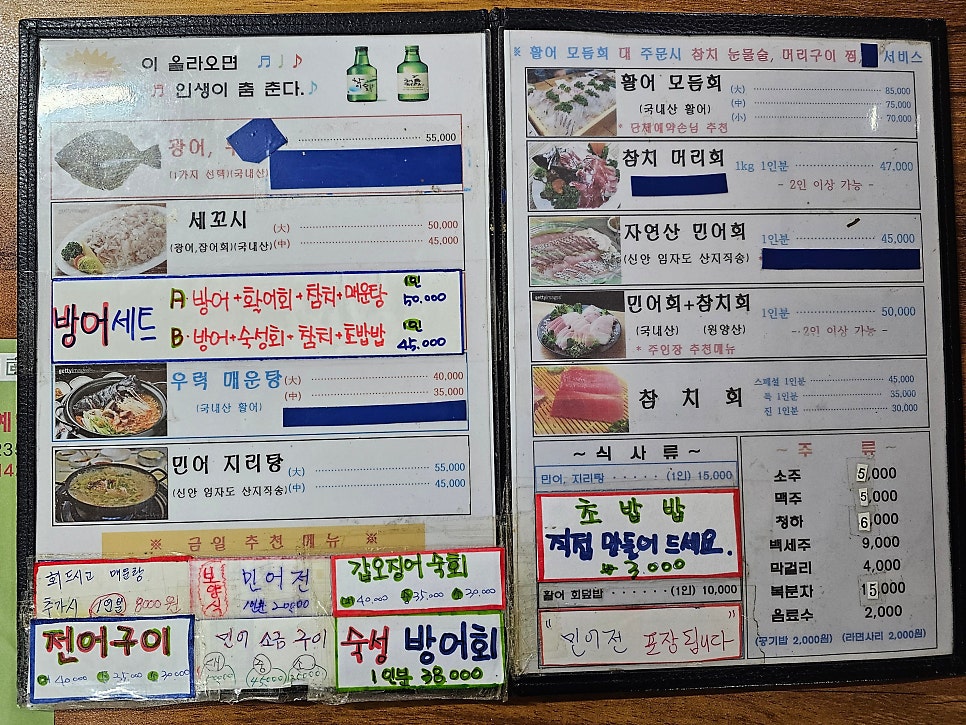 이 올라오면
인생이 춤 춘다.
광어,
55,000
(1가지 선택)(국내산)
세꼬시
(광어,잡어회)(국내산)
(大) 50,000
(中) 45,000
방어세트
A. 방어+활어회+참치+매운탕 1인 50.000
B. 방어+숙성회+참치+초밥밥 1인 45.000
gettyimages
우럭 매운탕
(국내산 활어)
(大) 40,000
(中) 35,000
민어 지리탕
(신안 임자도 산지직송)
(大) 55,000
(中) 45,000
※ 금일 추천 메뉴 ※
회드시고 매운탕
추가시 1인분 8000원
보양식
민어전
갑오징어 숙회
大 40.000 中 35.000 小 30.000
전어구이
민어 소금 구이
대 중 소
숙성 방어회
1인분 38.000
※ 활어 모듬회 대 주문시 참치 눈물술, 머리구이 찜, 서비스
활어 모듬회
(국내산 활어)
* 단체예약손님 추천
(大) 85,000
(中) 75,000
(小) 70,000
참치 머리회
1kg 1인분 47,000
- 2인 이상 가능 -
자연산 민어회
(신안 임자도 산지직송)
1인분 45,000
gettyimages
민어회+참치회
(국내산) (원양산)
* 주인장 추천메뉴
1인분 50,000
- 2인 이상 가능 -
참 치 회
스페셜 1인분 45,000
특 1인분 35,000
진 1인분 30,000
~ 식 사 류 ~
민어, 지리탕 (1인) 15,000
초 밥 밥
직접 만들어 드세요.
→ 3,000
활어 회덮밥 (1인) 10,000
"민어전 포장 됩니다"
~ 주 류 ~
소주 5,000
맥주 5,000
청하 6,000
백세주 9,000
막걸리 4,000
복분자 15,000
음료수 2,000
(공기밥 2,000원) (라면사리 2,000원)